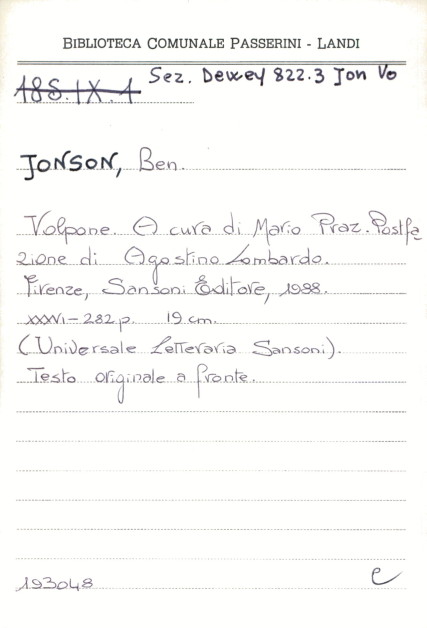 BIBLIOTECA COMUNALE PASSERINI - LANDI
Sez. Dewey 822.3 Jon Vo
188.IX.1
JONSON, Ben.
Volpone. A cura di Mario Praz. Postfa
zione di Agostino Lombardo.
Firenze, Sansoni Editore, 1988.
XXXVI-282 p. 19 cm.
(Universale Letteraria Sansoni).
Testo originale a fronte.
193048 e